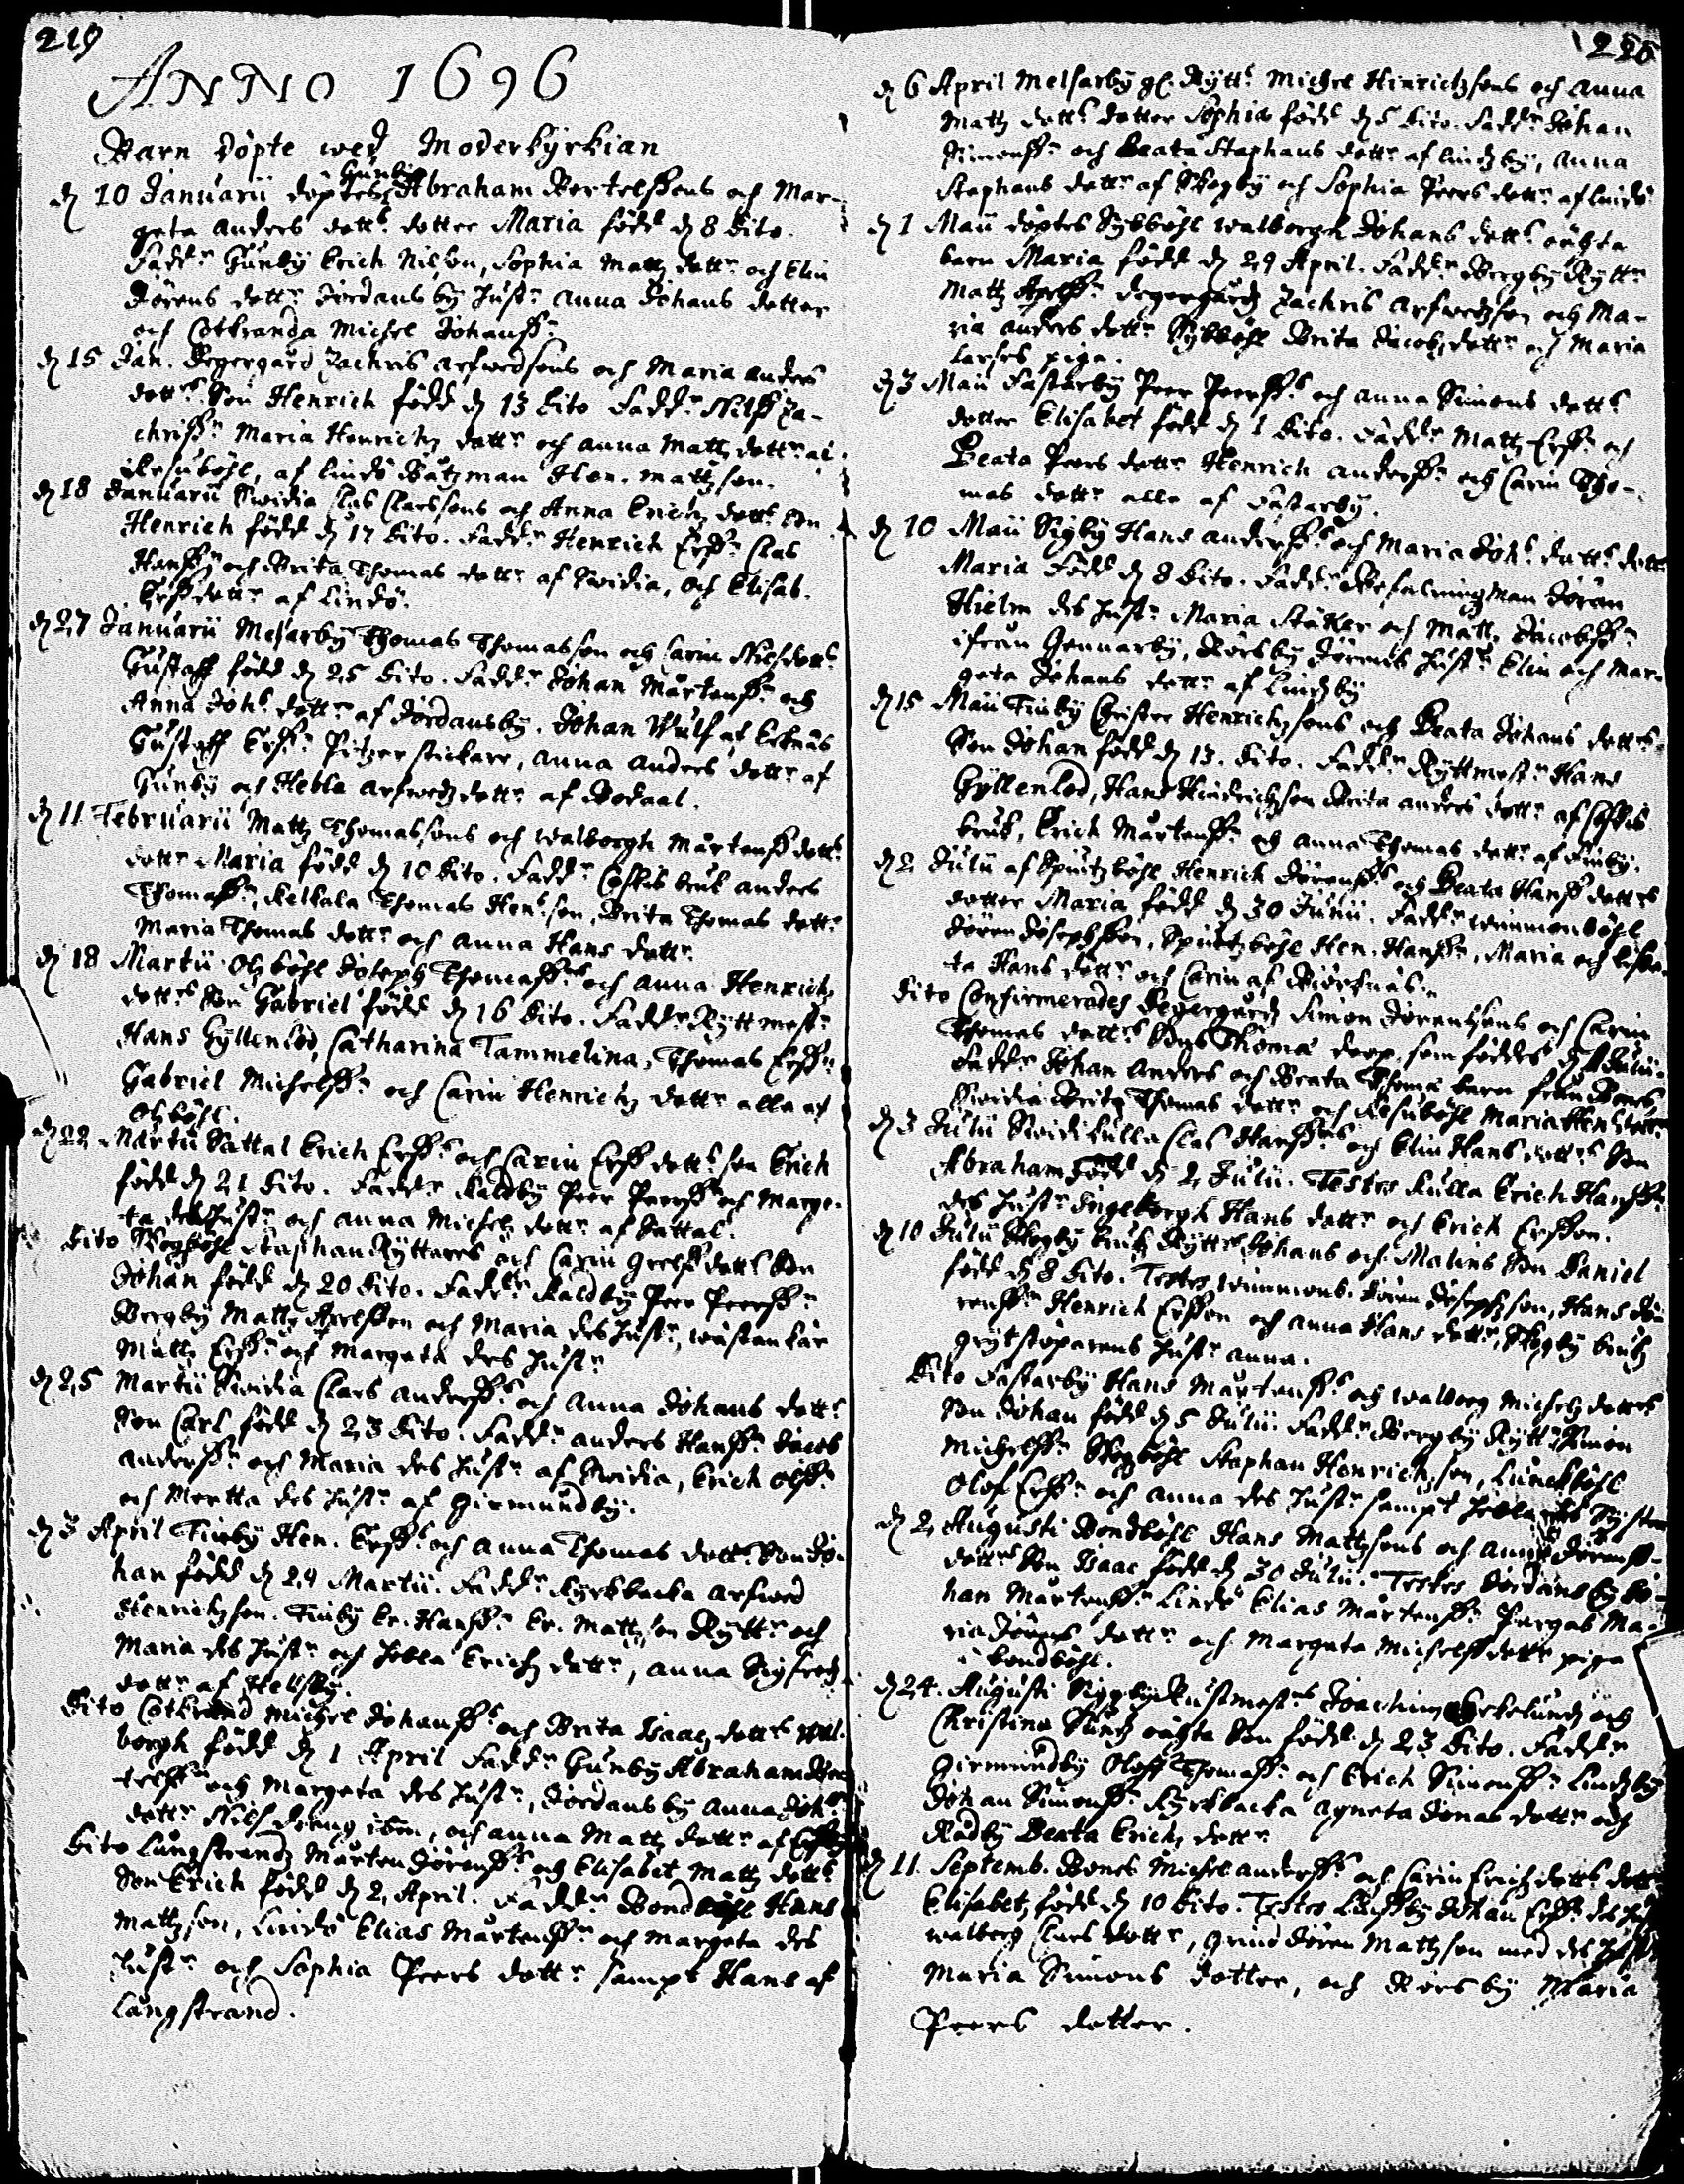 219
ANNO 1696
Barn döpte wed Moderkyrkian
Gunby
d 10 Januarii döptes Abraham Bertelssons och Mar-
geta Anders dotts dotter Maria född d 8 dito.
Faddr Gunby Erich Nilson, Sophia Matz dottr och Elin
Jörens dottr Jordansby hustr Anna Johans dotter
och Cotkranda Michel Johanssn
d 15 Jan. Degergård Zachris Arfwedsons och Maria Anders
dotts Son Henrich född d 13 dito Faddr Nilss Za-
chrissn Maria Henrichz dottr och Anna Matz dottr af
Resuböhl, af Lindö Båtzman Hen. Mattzson.
d 18 Januarii Swidia Clas Classons och Anna Erichz dotts Son
Henrich född d 17 dito. Faddr Henrich Erssn Clas
Hanssn och Brita Thomas dottr af Swidia, och Elisab.
Erssdottr af Lindö.
d 27 Januarii Melsarby Thomas Thomasson och Carin Nilsdotts
Gustaff född d 25 dito. Faddr Johan Mårtenssn och
Anna Johs dottr af Jordansby. Johan Wulf af Ecknäs
Gustaff Erssn Pitzerstickare, Anna Anders dottr af
Gunby och Hebla Arfwedz dottr af Rodaal.
d 11 Februarii Mattz Thomassons och Walborgh Mårtenss dotts
dottr Maria född d 10 dito. Faddr Coskis bruk Anders
Thomassn, Kelkala Thomas Hensson, Brita Thomas dottr
Maria Thomas dottr och Anna Hans dottr
d 18 Martii Olsböhl Joseph Thomasss och Anna Henrichz
dotts Son Gabriel född d 16 dito. Faddr Ryttmestr
Hans Gyllenlod, Catharina Tammelina, Thomas Erssn
Gabriel Michelssn och Carin Henrichz dottr alla af
Olsböhl.
d 22 Martii Sattal Erich Ersss och Carin Erss dotts son Erich
född d 21 dito. Faddr Kaldby Peer Peerssn och Marge-
ta des hustr och Anna Michels dottr af Sattal.
Dito Skogböhl Staphan Ryttares och Carin Grelss dotts Son
Johan född d 20 dito. Faddr Kaldby Peer Peerssn
Bergby Mattz Axelsson och Maria des hustr, Wästankär
Mattz Erssn och Margeta des hustr
d 25 Martii Swidia Claes Andersss och Anna Johans dotts
Son Carl född d 23 dito. Faddr Anders Hanssn Jacob
Anderssn och Maria des hustr af Swidia, Erich Olssn
och Mertta des hustr af Girmundby.
d 3 April Finby Hen. Ersss och Anna Thomas dotts Son Jo-
han född d 29 Martii. Faddr Kyrkbacka Arfwed
Henrichzson. Finby Er. Hanssn Er. Mattzson Ryttr och
Maria des hustr och Hebla Erichz dottr, Anna Sigfredz
dottr af Hellsby.
Dito Cotkrand Michel Johansss och Brita Isaacz dotts Wal-
borgh född d 1 April Faddr Gunby Abraham Ber-
telssn och Margeta des hustr, Jordansby Anna Johs
dottr Nils dreng ibm, och Anna Matz dottr af
Dito Långstrandz Mårten Jörensss och Elisabet Mattz dotts
Son Erich född d 2 April. Faddr Bondböhl Hans
Mattzson, Lindö Elias Mårtenssn och Margeta des
hustr och Sophia Peers dottr sampt Hans af
Långstrand.
220
d 6 April Melsarby gl. Rytts Michel Hinrichzsons och Anna
Mattz dotts dotter Sophia född d 5 dito. Faddr Johan
Simonssn och Beata Staphans dottr af Lindzby, Anna
Staphans dottr af Skogby och Sophia Peers dottr af Lindö
d 1 Maii döptes Sybböhl Walborgh Johans dotts oächta
barn Maria född d 29 April. Faddr Bergby Ryttr
Mattz Axelssn Degergårdz Zachris Arfwedzson och Ma-
ria Anders dottr Sybböhl Brita Jacobz dottr och Maria
Larses piga.
d 3 Maii Fastarby Peer Peersss och Anna Simons dotts
dotter Elisabet född d 1 dito. Faddr Mattz Erssn och
Beata Peers dottr Henrich Anderssn och Carin Tho-
mas dottr alla af Fastarby.
d 10 Maii Rigby Hans Andersss och Maria Johs dotts dottr
Maria född d 8 dito. Faddr Befalningzman Jöran
Hielm des hustr Maria Stäker och Mattz Jacobssn
ifrån Gennarby, Rörsby Jörens hustr Elin och Mar-
geta Johans dottr af Lindzby
d 15 Maii Finby Christer Henrichzsons och Beata Johans dotters
Son Johan född d 13. dito. Faddr Ryttmestr Hans
Gyllenlod, Hans Hindrichzson Brita Anders dottr af Coskis
bruk, Erich Mårtenssn och Anna Thomas dottr af Finby.
d 2 Julii af Spiutzböhl Henrich Jörensss och Beata Hanss dotters
dotter Maria född d 30 Junii. Faddr Wimmonböhl
Jören Josephsson, Spiutzböhl Hen. Hanssn, Maria och Lisbe-
ta Hans dottr och Carin af Biörsnäs.
Dito Confirmerades Degergårdz Simon Jörenssons och Carin
Thomas dotts Sons Thomæ doop. som föddes d 1 Julii.
Faddr Johan Anders och Beata Thomæ barn från Bonäs
Swidia Brita Thomas dottr och Resuböhl Maria Hens dottr
d 3 Julii Swidikulla Clas Hansss och Elin Hans dotts Son
Abraham född d 2 Julii. Testes Kulla Erich Hanssn
des hustr Ingeborgh Hans dottr och Erich Ersson.
d 10 Julii Skogby bruk Rytts Johans och Malins Son Daniel
född d 8 dito. Testes Wimmonb. Jören Josephson, Hans Jö-
renssn Henrich Ersson och Anna Hans dottr, Skogby brukz
grytstöparens hustr Anna.
Dito Fastarby Hans Mårtensss och Walborg Michels dotters
Son Johan född d 5 Julii. Faddr Bergby Ryttr Simon
Michelssn Skogböhl Staphan Henrichzson, Lunckböhl
Olof Erssn och Anna des hustr sampt Hebla des Syster
d 2 Augusti Bondböhl Hans Mattzsons och Anna Jörenss-
dotts Son Isaac född d 30 Julii. Testes Jordansby Jo-
han Mårtenssn Lindö Elias Mårtenssn Pargas Ma-
ria Jörens dottr och Margeta Michelssdottr piga
i Bondböhl.
d 24. Augusti Rigby Rustmests Joachim Ekelundz och
Christina Sundz oächta Son född d 23 dito. Faddr
Girmundby Oloff Thomassn och Erich Simonssn Lindzby
Johan Simonssn Kyrkbacka Agneta Jonas dottr och
Rådby Beata Erichz dottr
d 11 Septemb. Bonäs Michel Andersss och Carin Erichz dotts dottr
Elisabet född d 10 dito. Testes Johan Erssn des hustr
Walborg Claes dottr, Grind Jören Mattzson med des hustr
Maria Simons dotter, och Rörsby Maria
Peers dotter.